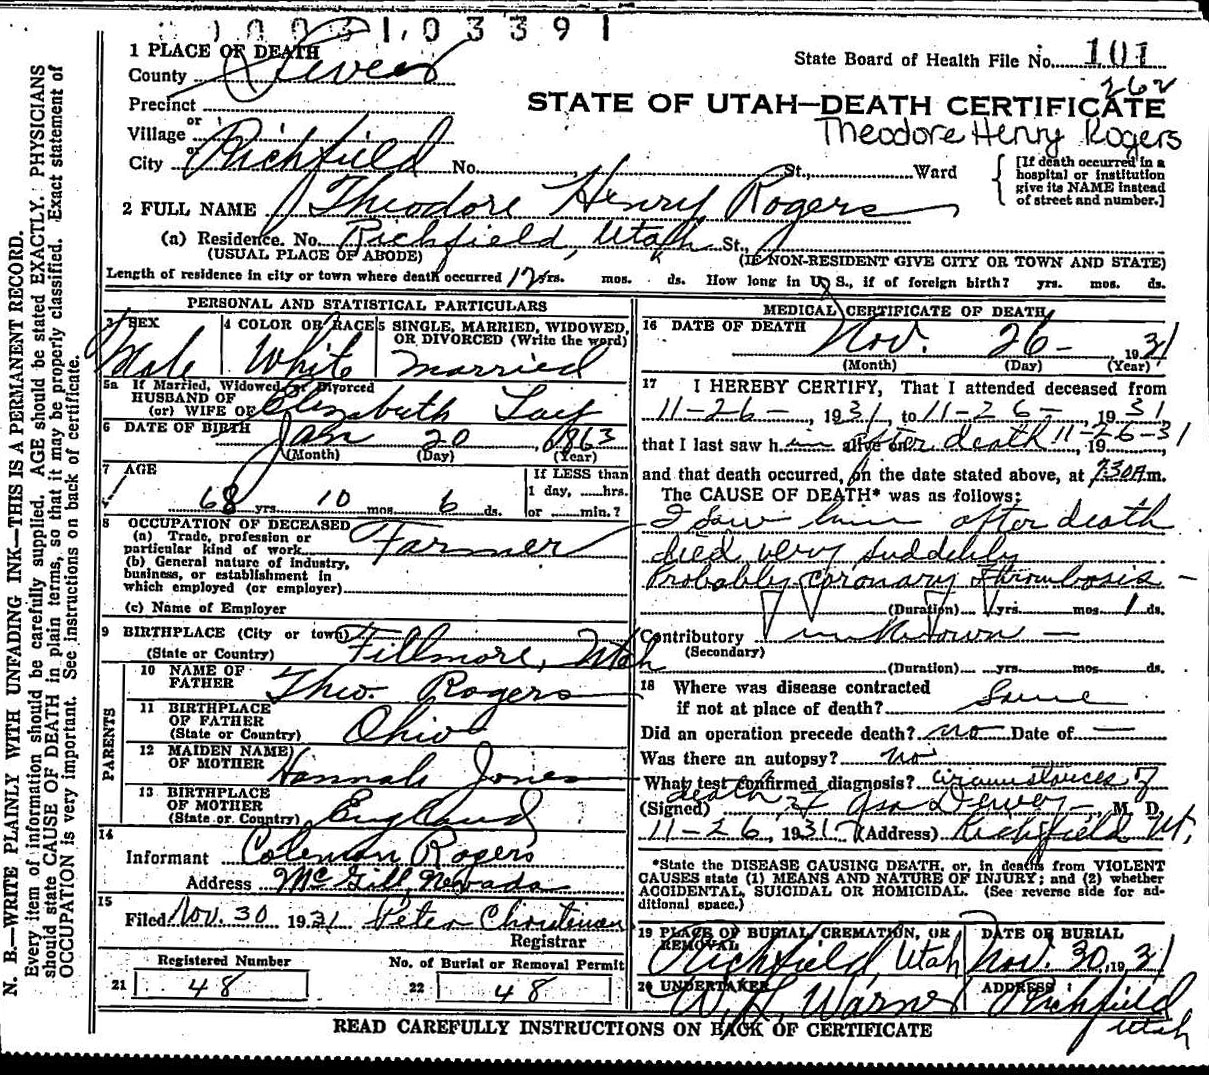 1003103391
1 PLACE OF DEATH
County Sevier
State Board of Health File No. 101
262
Precinct
STATE OF UTAH—DEATH CERTIFICATE
or
Village
Theodore Henry Rogers
or
City Richfield No. St., Ward
[If death occurred in a hospital or institution give its NAME instead of street and number.]
2 FULL NAME Theodore Henry Rogers
(a) Residence. No. Richfield, Utah St.,
(USUAL PLACE OF ABODE) (IF NON-RESIDENT GIVE CITY OR TOWN AND STATE)
Length of residence in city or town where death occurred 12 yrs. mos. ds. How long in U. S., if of foreign birth? yrs. mos. ds.
PERSONAL AND STATISTICAL PARTICULARS
3 SEX 4 COLOR OR RACE 5 SINGLE, MARRIED, WIDOWED, OR DIVORCED (Write the word)
Male White Married
5a If Married, Widowed or Divorced
HUSBAND OF
(or) WIFE OF Elizabeth
6 DATE OF BIRTH Jan 20 1863
(Month) (Day) (Year)
7 AGE
68 yrs. 10 mos. 6 ds.
If LESS than
1 day, ......hrs.
or ......min.?
8 OCCUPATION OF DECEASED
(a) Trade, profession or
particular kind of work Farmer
(b) General nature of industry,
business, or establishment in
which employed (or employer)
(c) Name of Employer
9 BIRTHPLACE (City or town)
(State or Country) Fillmore, Utah
PARENTS
10 NAME OF
FATHER Theo. Rogers
11 BIRTHPLACE
OF FATHER
(State or Country) Ohio
12 MAIDEN NAME
OF MOTHER Hannah Jones
13 BIRTHPLACE
OF MOTHER
(State or Country) England
14
Informant Coleman Rogers
Address McGill, Nevada
15
Filed Nov. 30 1931 Peter Christensen
Registrar
Registered Number No. of Burial or Removal Permit
21 48 22 48
MEDICAL CERTIFICATE OF DEATH
16 DATE OF DEATH
Nov. 26- , 1931
(Month) (Day) (Year)
17 I HEREBY CERTIFY, That I attended deceased from
11-26-, 1931, to 11-26-, 1931
that I last saw him alive on after death 11-26-31, 19
and that death occurred, on the date stated above, at 730 A m.
The CAUSE OF DEATH* was as follows:
I saw him after death
died very suddenly
Probably coronary thrombosis -
(Duration) yrs. mos. 1 ds.
Contributory unknown -
(Secondary)
(Duration) yrs. mos. ds.
18 Where was disease contracted
if not at place of death? Same
Did an operation precede death? no Date of —
Was there an autopsy? no
What test confirmed diagnosis? circumstances of
death
(Signed) M. D.
11-26, 1931 (Address) Richfield Ut.
*State the DISEASE CAUSING DEATH, or, in deaths from VIOLENT
CAUSES state (1) MEANS AND NATURE OF INJURY; and (2) whether
ACCIDENTAL, SUICIDAL OR HOMICIDAL. (See reverse side for ad-
ditional space.)
19 PLACE OF BURIAL, CREMATION, OR REMOVAL DATE OF BURIAL
Richfield, Utah Nov. 30, 1931
20 UNDERTAKER ADDRESS
W. H. Warner Richfield
Utah
READ CAREFULLY INSTRUCTIONS ON BACK OF CERTIFICATE
N. B.—WRITE PLAINLY WITH UNFADING INK—THIS IS A PERMANENT RECORD.
Every item of information should be carefully supplied. AGE should be stated EXACTLY. PHYSICIANS
should state CAUSE OF DEATH in plain terms, so that it may be properly classified. Exact statement of
OCCUPATION is very important. See instructions on back of certificate.